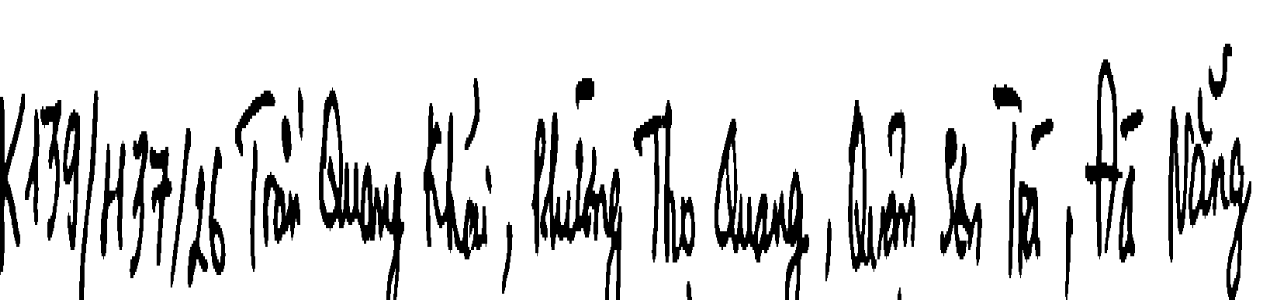 K139/H37/26 Trần Quang Khải, Phường Thọ Quang, Quận Sơn Trà, Đà Nẵng